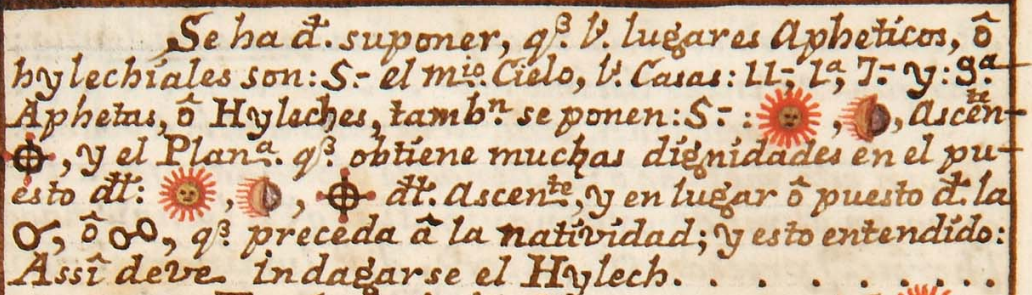 Se ha đ. suponer, q.ᵉ lˢ. lugares Apheticos, ô
hylechiales son: 5- el m.ⁱᵒ Cielo, lˢ. Casas: 11-, 1ª, 7- y: 9.ª
Aphetas, ô Hyleches, tamb.ⁿ se ponen: 5- : ☉, ☽, Ascen-ᵗᵉ
⊕, y el Plan.ᵃ q.ᵉ obtiene muchas dignidades en el pu-
esto đł: ☉, ☽, ⊕ đł. Ascen.ᵗᵉ, y en lugar ô puesto đ. la
☌, ô ☍, q.ᵉ preceda â la natividad; y esto entendido:
Assî deve indagarse el Hylech. . . . . . . . .